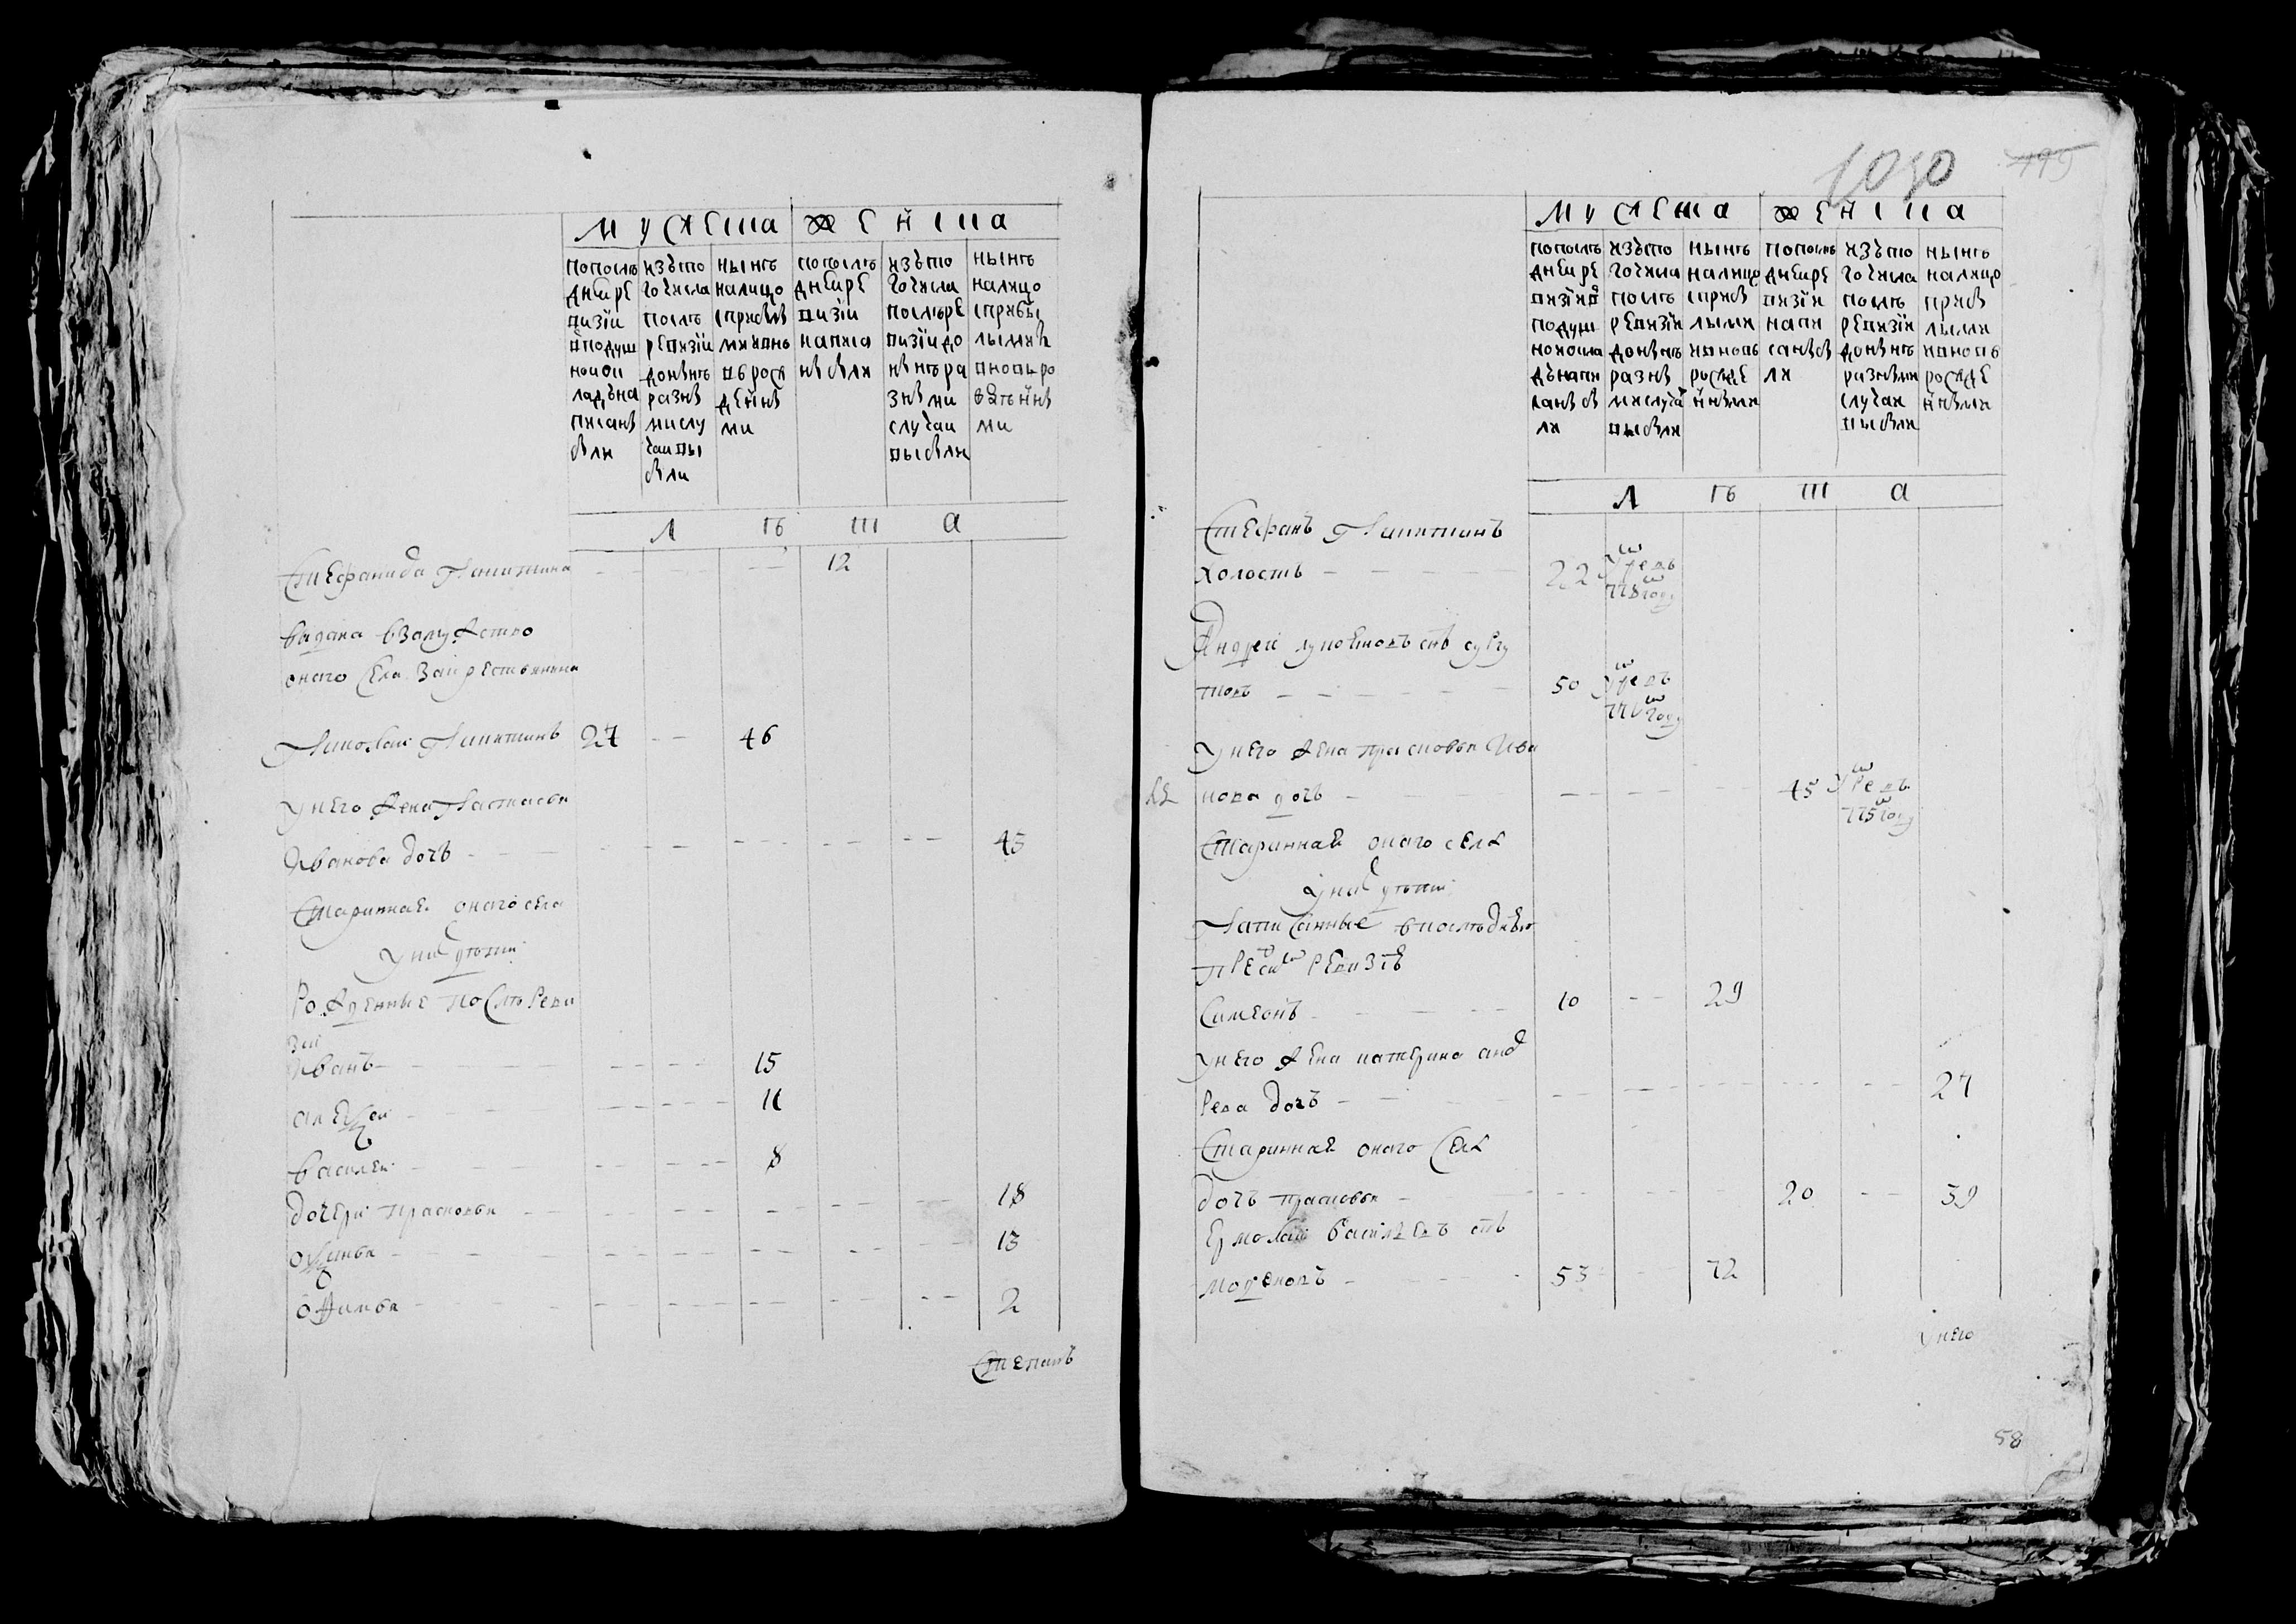 мужеска женска
попослѣ
днеи ре
визіи
в подуш
ном ок
ладѣ на
писанѣ
были
изъ то
го числа
послѣ
ревизіи
до нынѣ
разнѣ
ми слу
чаи вы
были
нынѣ
налицо
с прибы
ми и вно
вь рож
денны
ми
попослѣ
днеи ре
визіи
написа
нѣ были
изъ то
го числа
послѣ ре
визіи до
нынѣ ра
знѣ ми
случаи
выбыли
нынѣ
налицо
с прибы
лыми и
вновь ро
жденнѣ
ми
л ѣ т а
Стефанида Никитина 12
выдана взамужство
оного села за крестьянина
Николаи Никитинъ 27 46
у него жена Настасья
Иванова дочь 43
Старинная оного села
у них дѣти
Рожденные после реви
зии
Иванъ 15
алеѯеи 11
василеи 8
дочери прасковья 18
оксинья 13
офимья 2
Степанъ
1030
495
мужеска женска
попослѣ
днеи ре
визіи в
подуш
ном окла
дѣ напи
санѣ бы
ли
изъ то
го числа
послѣ
ревизіи
до нынѣ
разнѣ
ми случаи
выбыли
нынѣ
налицо
с прибы
лыми
и вновь
рожде
нными
попослѣ
днеи ре
визіи
напи
санѣ бы
ли
изъ то
го числа
послѣ
ревизіи
до нынѣ
разными
случаи
выбыли
нынѣ
налицо
прибы
лыми
и вновь
рожде
нными
л ѣ т а
Стефанъ Никитинъ
холостъ 22 умре въ
778 году
Андреи лукояновъ снъ сургу
товъ 50 умре въ
году
у него жена прасковья Ива
нова дочь 45 умре въ
775 году
Старинная оного села
у них дѣти
Написанные в последнею
пред сим ревизіею
Симеонъ 10 29
у него жена катерина анд
реева дочь 27
Старинная оного села
дочь прасковья 20 39
Ермолаи васильевъ снъ
53 72
у него
58